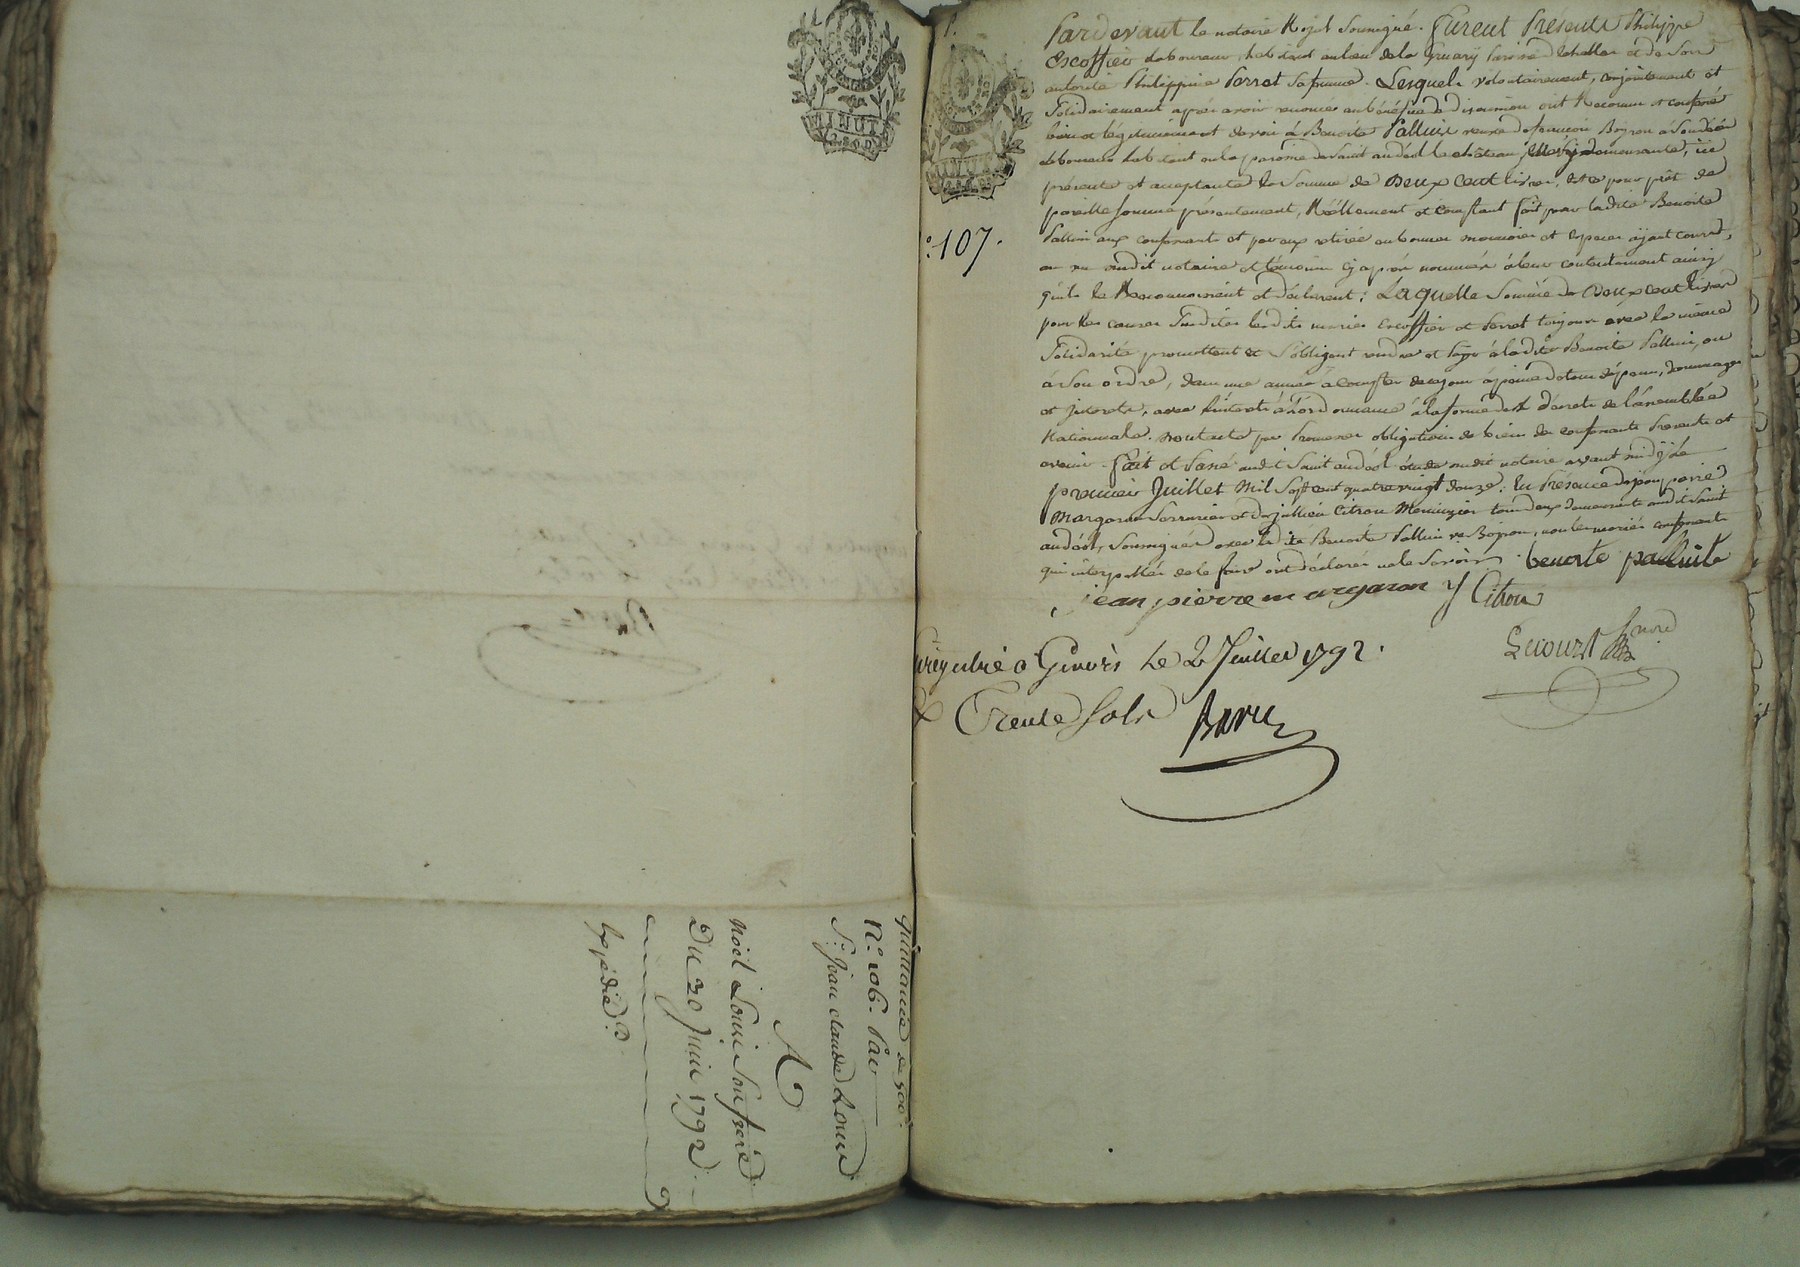 MINUT
quittance de 500#
N.° 106. Par
S.r Jean claude Loume
A
Noël Louis Son frere
Du 30 Juin 1792
Expédié
MINUT
N.° 107.
Pardevant le notaire Royal Soussigné. Furent Présents Philippe
Escoffier laboureur, habitant au lieu de la paroisse de et de Son
autorité Philippine Perret Sa femme. Lesquels volontairement, conjointement et
Solidairement après avoir renoncés au bénéfice de division ont Reconnu et confessé
bien et légitimement devoir à Benoite Palluis veuve de Boiron à
laboureur habitant en la paroisse de Saint andéol le château elle y demeurante, ici
présente et acceptante la Somme de Deux Cent livres, et ce pour prêt de
pareille Somme présentement, Réellement et Comptant fait par ladite Benoite
Palluis aux confessants et par eux retirée en bonnes monnoies et especes ayant cours,
au vu dudit notaire et témoins cy après nommés à leur contentement ainsy
qu'ils le Reconnoissent et déclarent; Laquelle Somme de Deux cent livres
pour les causes Susdites lesdits mariés Escoffier et Perret toujours avec la même
Solidarité promettent et S'obligent rendre et payer à ladite Benoite Palluis, ou
à Son ordre, dans une année à compter de ce jour à peine de tous dépens, dommages
et intérets, avec l'intérêt à l'ordonnance à la forme des décrets de l'assemblée
Nationale. par Promesses obligation de biens des confessants Presents et
avenir. Fait et Passé audit Saint andéol étude dudit notaire avant midy le
premier Juillet Mil Sept cent quatre vingt douze: En Présence de jean pierre
Margaron Serrurier et de jullien Citron Menuizier tous deux demeurants audit Saint
andéol, Soussignés avec la dite Benoite Palluis v.e Boiron, non les mariés confessants
qui interpellés de le faire ont déclaré ne le Savoir. benoite palluite
jean pierre margaron J Citron
Lecourt nore
Enregistré à Givors le 2 Juillet 1792.
Trente Sols